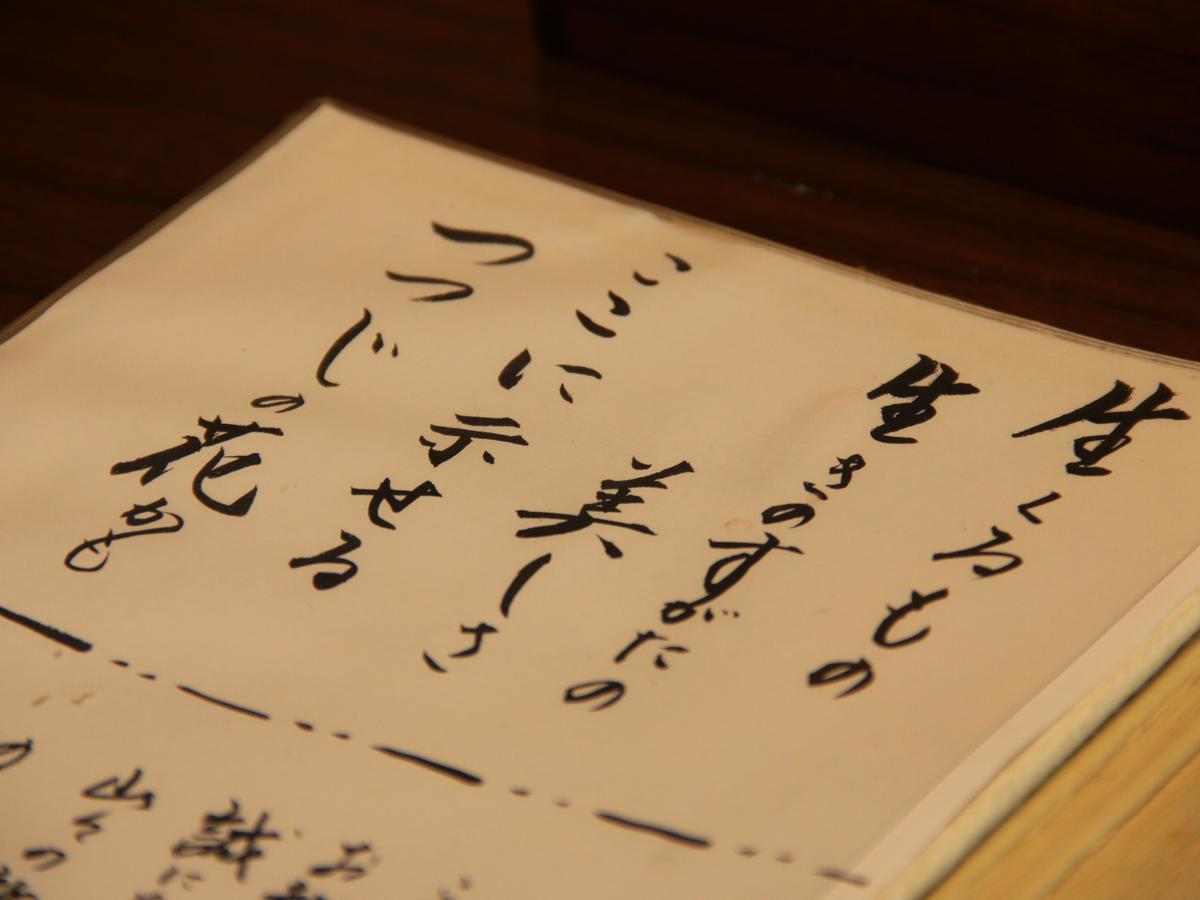 生くるもの
生きのすがたの
美しさ
ここに示せる
つつじの花かも
お
誠に
山々の
の